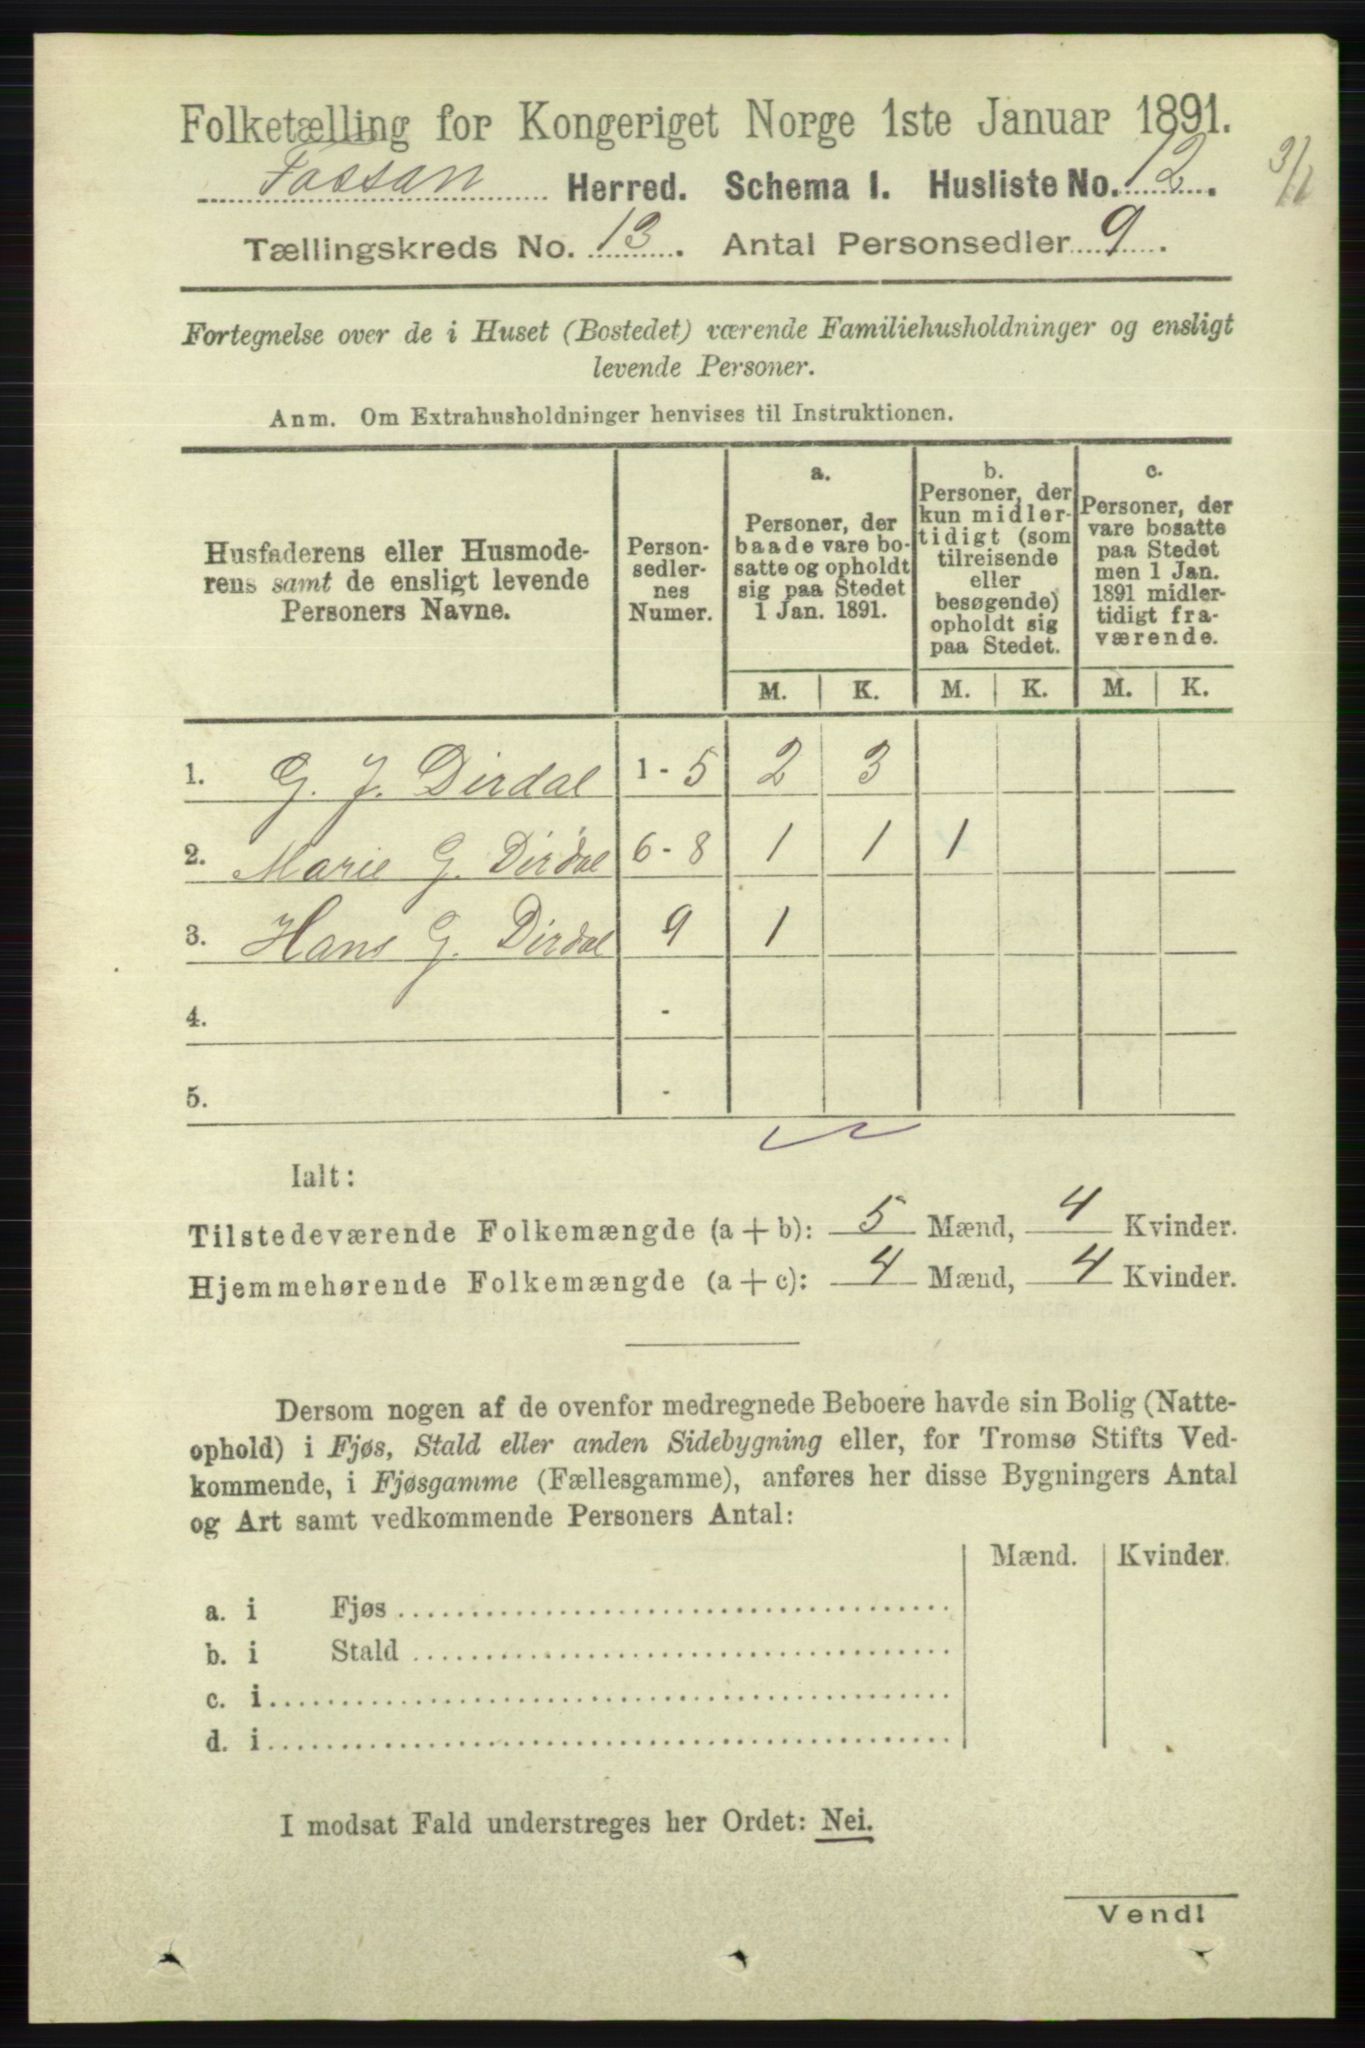 Folketælling for Kongeriget Norge 1ste Januar 1891.
Fossan Herred. Schema I. Husliste No. 12. 3/1
Tællingskreds No. 13. Antal Personsedler 9.
Fortegnelse over de i Huset (Bostedet) værende Familiehusholdninger og ensligt
levende Personer.
Anm. Om Extrahusholdninger henvises til Instruktionen.
Husfaderens eller Husmode-
rens samt de ensligt levende
Personers Navne.
Person-
sedler-
nes
Numer.
a.
Personer, der
baade vare bo-
satte og opholdt
sig paa Stedet
1 Jan. 1891.
b.
Personer, der
kun midler-
tidigt (som
tilreisende
eller
besøgende)
opholdt sig
paa Stedet.
c.
Personer, der
vare bosatte
paa Stedet
men 1 Jan.
1891 midler-
tidigt fra-
værende.
M. K. M. K. M. K.
1. G. J. Dirdal 1 - 5 2 3
2. Marie G. Dirdal 6 - 8 1 1 1
3. Hans G. Dirdal 9 1
4. -
5. -
Ialt:
Tilstedeværende Folkemængde (a + b): 5 Mænd, 4 Kvinder.
Hjemmehørende Folkemængde (a + c): 4 Mænd, 4 Kvinder.
Dersom nogen af de ovenfor medregnede Beboere havde sin Bolig (Natte-
ophold) i Fjøs, Stald eller anden Sidebygning eller, for Tromsø Stifts Ved-
kommende, i Fjøsgamme (Fællesgamme), anføres her disse Bygningers Antal
og Art samt vedkommende Personers Antal:
Mænd. Kvinder.
a. i Fjøs
b. i Stald
c. i
d. i
I modsat Fald understreges her Ordet: Nei.
Vend!